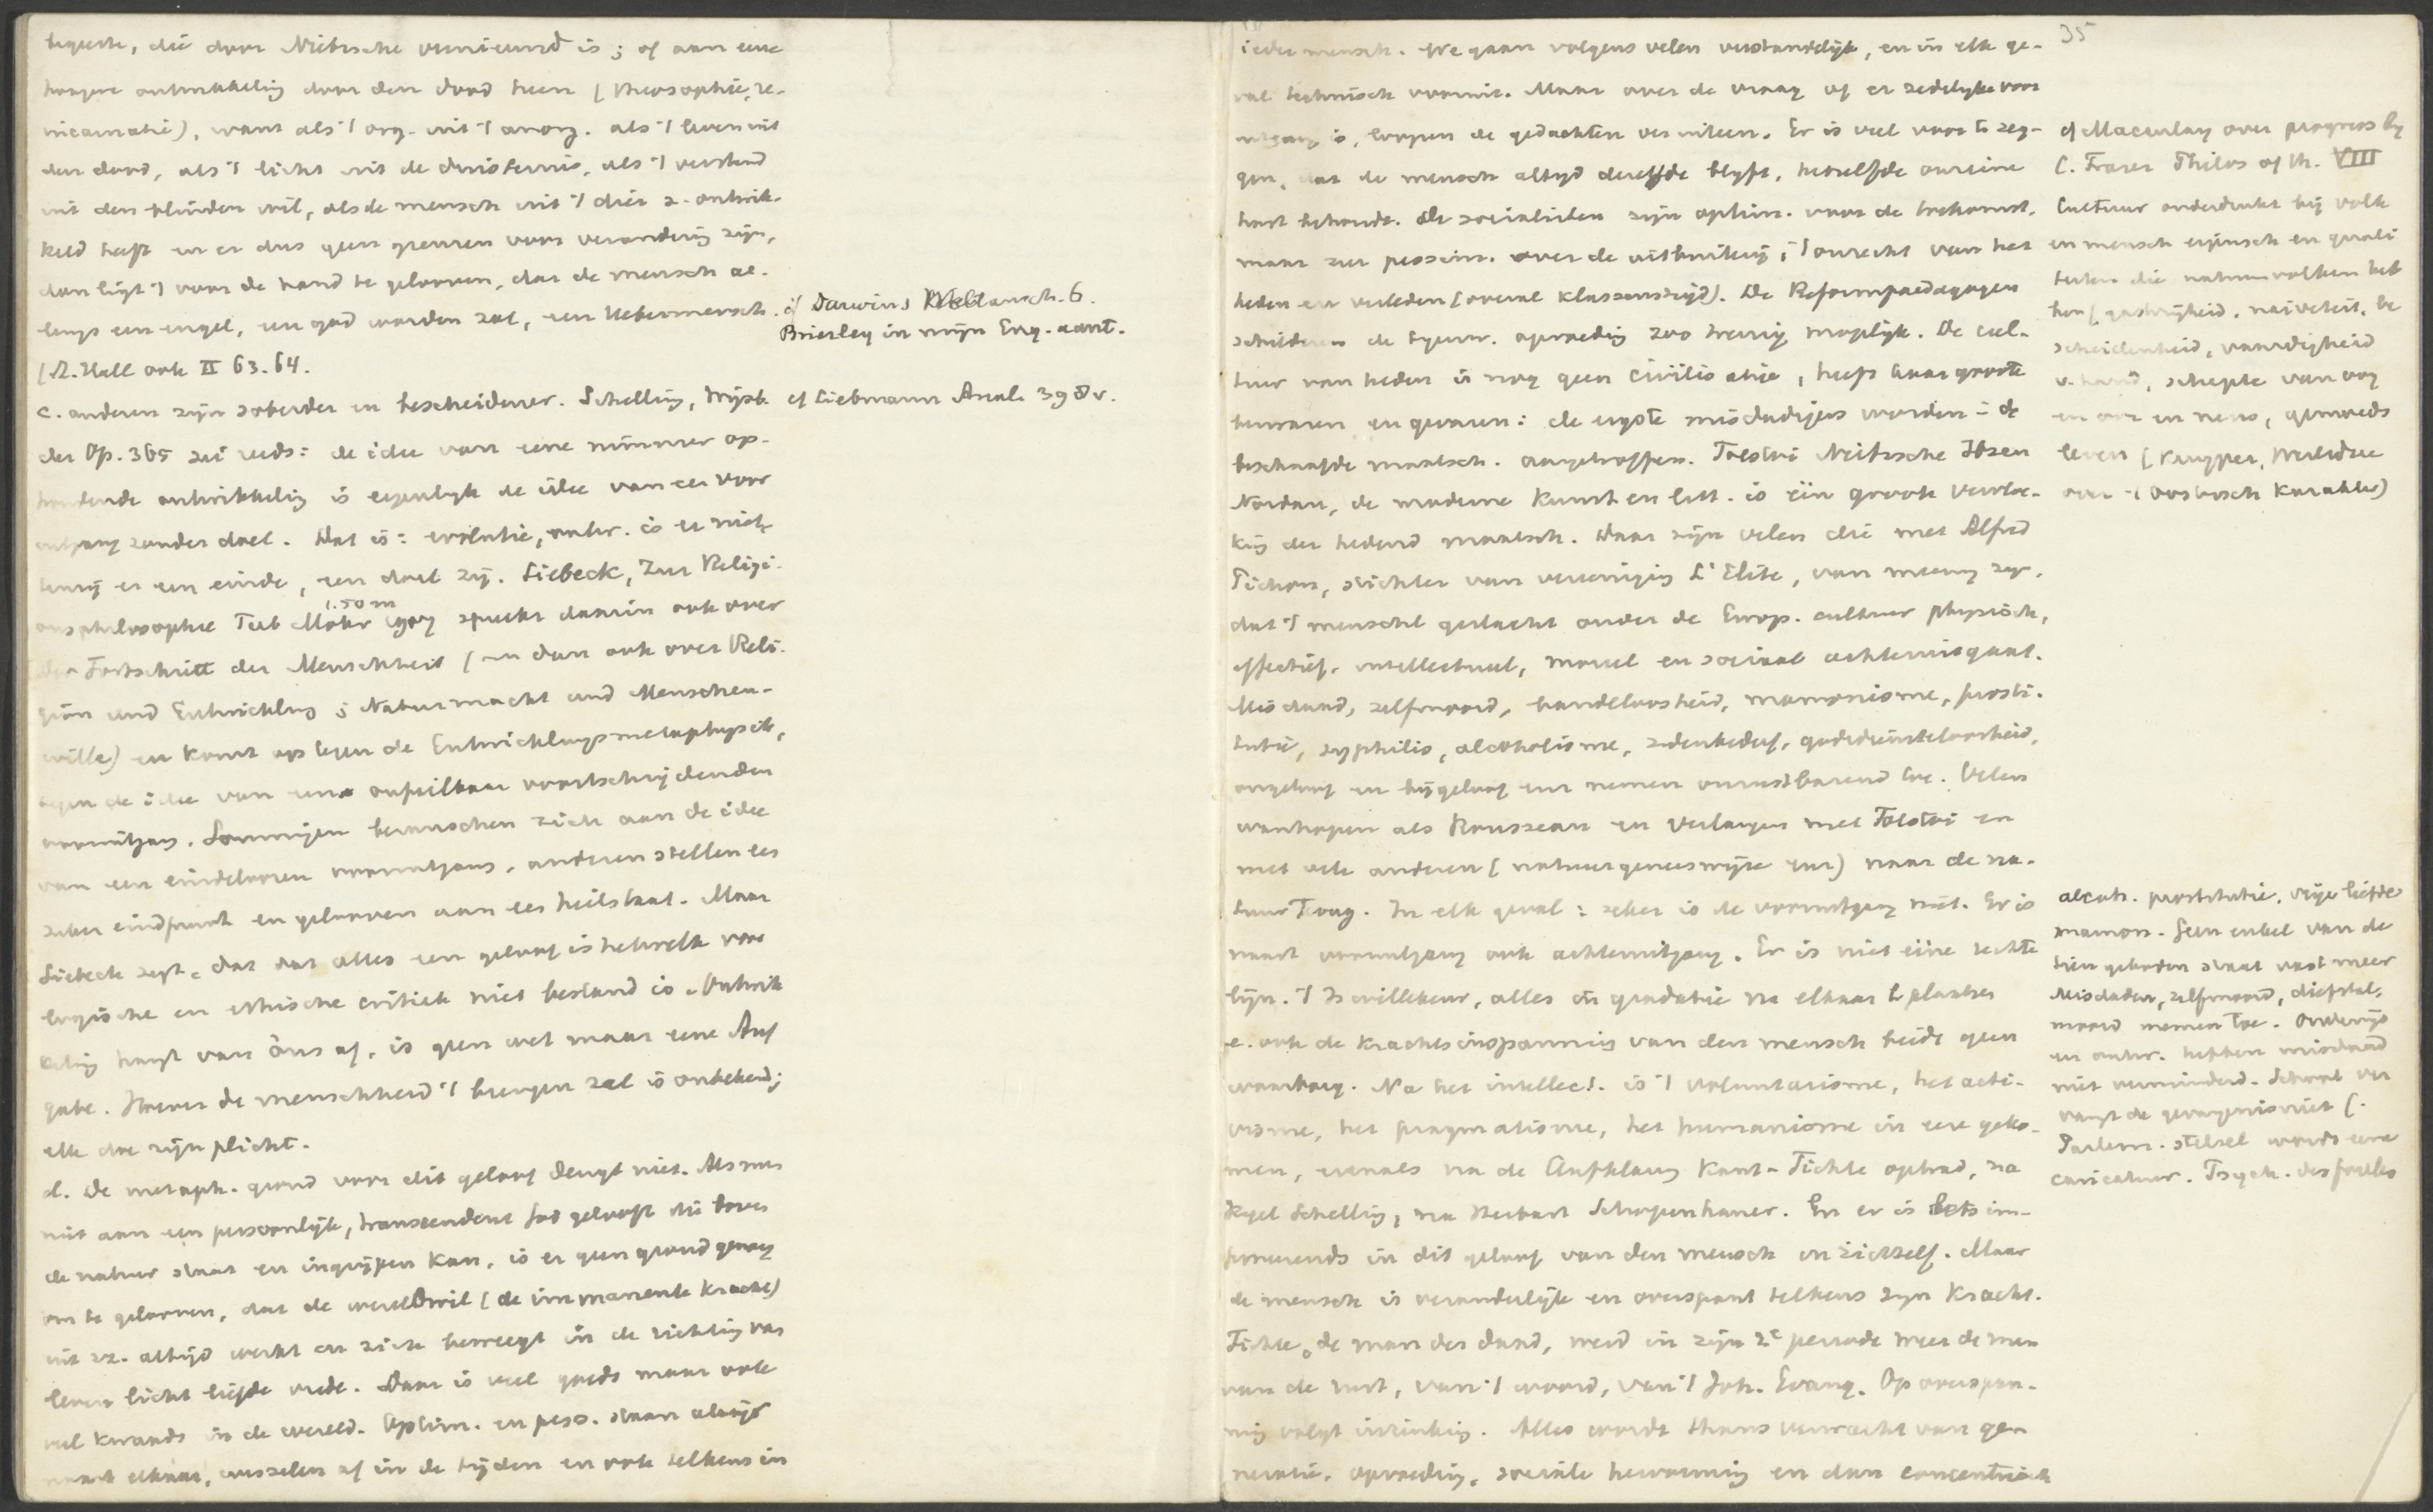 die door Nietzsche vernieuwd is ; of aan eene
hoogere ontwikkeling door den dood heen (theosophie, re-
incarnatie), want als 't org. uit 't anorg. als 't leven uit
den dood, als 't licht uit de duisternis, als 't verstand
uit den blinden wil, als de mensch uit 't dier z. ontwik-
keld heeft en er dus geen grenzen voor verandering zijn,
dan ligt 't voor de hand te gelooven, dat de mensch al-
lengs een engel, een god worden zal, een Uebermensch.
cf Darwins Weltansch. 6.
Brierley in mijn Eng. aant.
Hall ook II 63. 64.
c. anderen zijn soberder en bescheidener. Schelling,
cf Liebmann Anal. 398 v.
365 zei reeds: de idee van eene nimmer op-
houdende ontwikkeling is eigenlijk de idee van een voor
uitgang zonder doel. Dat is: evolutie, ontw. is er niet,
tenzij er een einde, een doel zij. Siebeck, Zur Religi-
1.50 m
onsphilosophie Tüb Mohr spreekt daarin ook over
Der Fortschritt der Menschheit (en dan ook over Reli-
gion und Entwicklung ; Naturmacht und Menschen-
wille) en komt op tegen de Entwicklungsmetaphysik,
tegen de idee van een onfeilbaar voortschrijdenden
vooruitgang. Sommigen berauschen zich aan de idee
van een eindeloozen vooruitgang, anderen stellen een
zeker eindpunt en gelooven aan een heilstaat. Maar
Siebeck zegt, dat dat alles een geloof is hetwelk voor
logische en ethische critiek niet bestand is. Ontwik
keling hangt van ons af, is geen wet maar eene Auf
gabe. Hoever de menschheid 't brengen zal is onbekend;
elk doe zijn plicht.
d. De metaph. grond voor dit geloof deugt niet. Als men
niet aan een persoonlijk, transcendent God gelooft die boven
de natuur staat en ingrijpen kan, is er geen grond genoeg
om te gelooven, dat de wereldwil (de immanente kracht)
uit zz. altijd werkt en zich beweegt in de richting van
leven licht liefde vrede. Daar is veel goeds maar ook
veel kwaads in de wereld. Optim. en pess. staan altijd
naast elkaar, wisselen af in de tijden en ook telkens in
35
ieder mensch. We gaan volgens velen verstandelijk, en in elk ge-
val technisch vooruit. Maar over de vraag of er zedelijke voor
uitgang is, loopen de gedachten uiteen. Er is veel voor te zeg-
gen, dat de mensch altijd dezelfde blijft, hetzelfde onreine
hart behoudt. De socialisten zijn optim. voor de toekomst,
maar zeer pessim. over de uitbuiting, 't onrecht van het
heden en verleden (overal klassenstrijd). De Reformpaedagogen
schilderen de tegenw. opvoeding zoo treurig mogelijk. De cul-
tuur van heden is nog geen civilisatie, heeft haar groote
bezwaren en gevaren: de ergste misdadigers worden in de
beschaafde maatsch. aangetroffen. Tolstoi Nietzsche Ibsen
Nordau, de moderne kunst en litt. is één groote verloo-
king der hedend maatsch. Daar zijn velen die met Alfred
Pichon, stichter van vereeniging L'Elite, van meening zijn,
dat 't menschl geslacht onder de Europ. cultuur physisch,
effectief, intellectueel, moreel en sociaal achteruitgaat.
Misdaad, zelfmoord, bandeloosheid, mammonisme, prosti-
tutie, syphilis, alcoholisme, zedenbederf, godsdienstloosheid,
ongeloof en bijgeloof enz nemen onrustbarend toe. Velen
wanhopen als Rousseau en verlangen met Tolstoi en
met vele anderen (natuurgeneeswijze enz) naar de na-
tuur terug. In elk geval: zeker is de vooruitgang niet. Er is
naast vooruitgang ook achteruitgang. Er is niet ééne rechte
lijn. 't Is willekeur, alles in gradatie na elkaar te plaatsen
e. ook de krachtsinspanning van den mensch biedt geen
waarborg. Na het intellect. is 't voluntarisme, het acti-
visme, het pragmatisme, het humanisme in eere geko-
men, evenals na de Aufklärung Kant-Fichte optrad, na
Hegel Schelling, na Herbart Schopenhauer. En er is iets im-
poneerends in dit geloof van den mensch in zichzelf. Maar
de mensch is veranderlijk en overspant telkens zijn kracht.
Fichte, de man der daad, werd in zijn 2e periode meer de man
van de rust, van 't woord, van 't Joh. Evang. Op overspan-
ning volgt inzinking. Alles wordt thans verwacht van gen
neratie, opvoeding, sociale hervorming en dan concentrisch
cf Macaulay over progress bij
C. Fraser Philos of th. VIII
Cultuur onderdrukt bij volk
en mensch eigensch en quali
teiten die natuurvolken heb
ben (gastvrijheid, naïveteit, be
scheidenheid, vaardigheid
v. hand, scherpte van oog
en oor en neus, gemoeds
leven (Kuyper,
over 't Oostersch karakter)
alcoh. prostitutie, vrije liefde
mamon. Geen enkel van de
tien geboden staat vast meer
Misdaden, zelfmoord, diefstal,
moord nemen toe. Onderwijs
en ontw. hebben misdaad
niet verminderd. School ver
vangt de gevangenis niet (.
Parlem. stelsel wordt eene
caricatuur. Psych. des foules